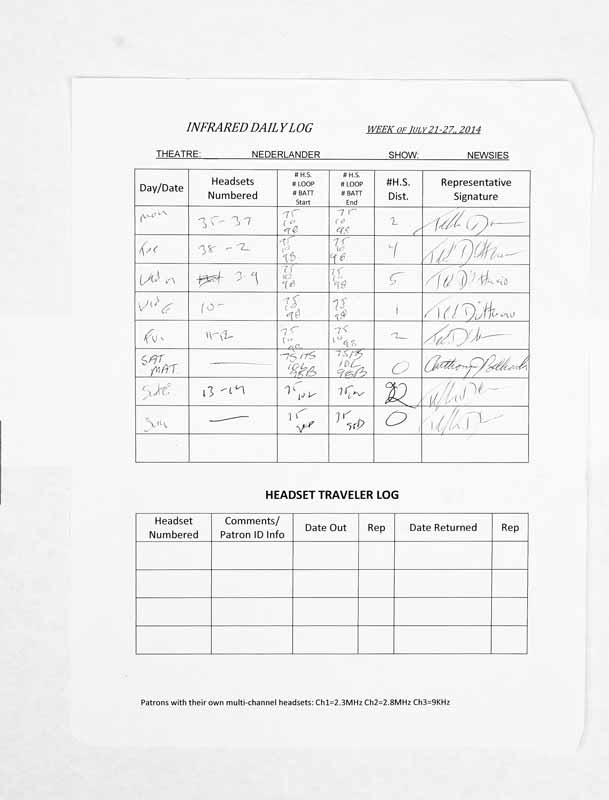 INFRARED DAILY LOG WEEK OF JULY 21-27, 2014
THEATRE: NEDERLANDER SHOW: NEWSIES
Day/Date Headsets Numbered # H.S. # LOOP # BATT Start # H.S. # LOOP # BATT End #H.S. Dist. Representative Signature
Mon 35-37 75 10 98 75 10 98 2
Tue 38-2 75 10 98 75 10 98 4
Wed m 3-9 75 10 98 75 10 98 5
Wed e 10- 75 10 98 75 10 98 1
Fri 11-12 75 10 98 75 10 98 2
SAT MAT — 75HS 10L 98B 75HS 10L 98B 0 Anthony
Sat e 13-14 75 10L 75 2
Sun — 75 75 0
HEADSET TRAVELER LOG
Headset Numbered Comments/ Patron ID Info Date Out Rep Date Returned Rep
Patrons with their own multi-channel headsets: Ch1=2.3MHz Ch2=2.8MHz Ch3=9KHz